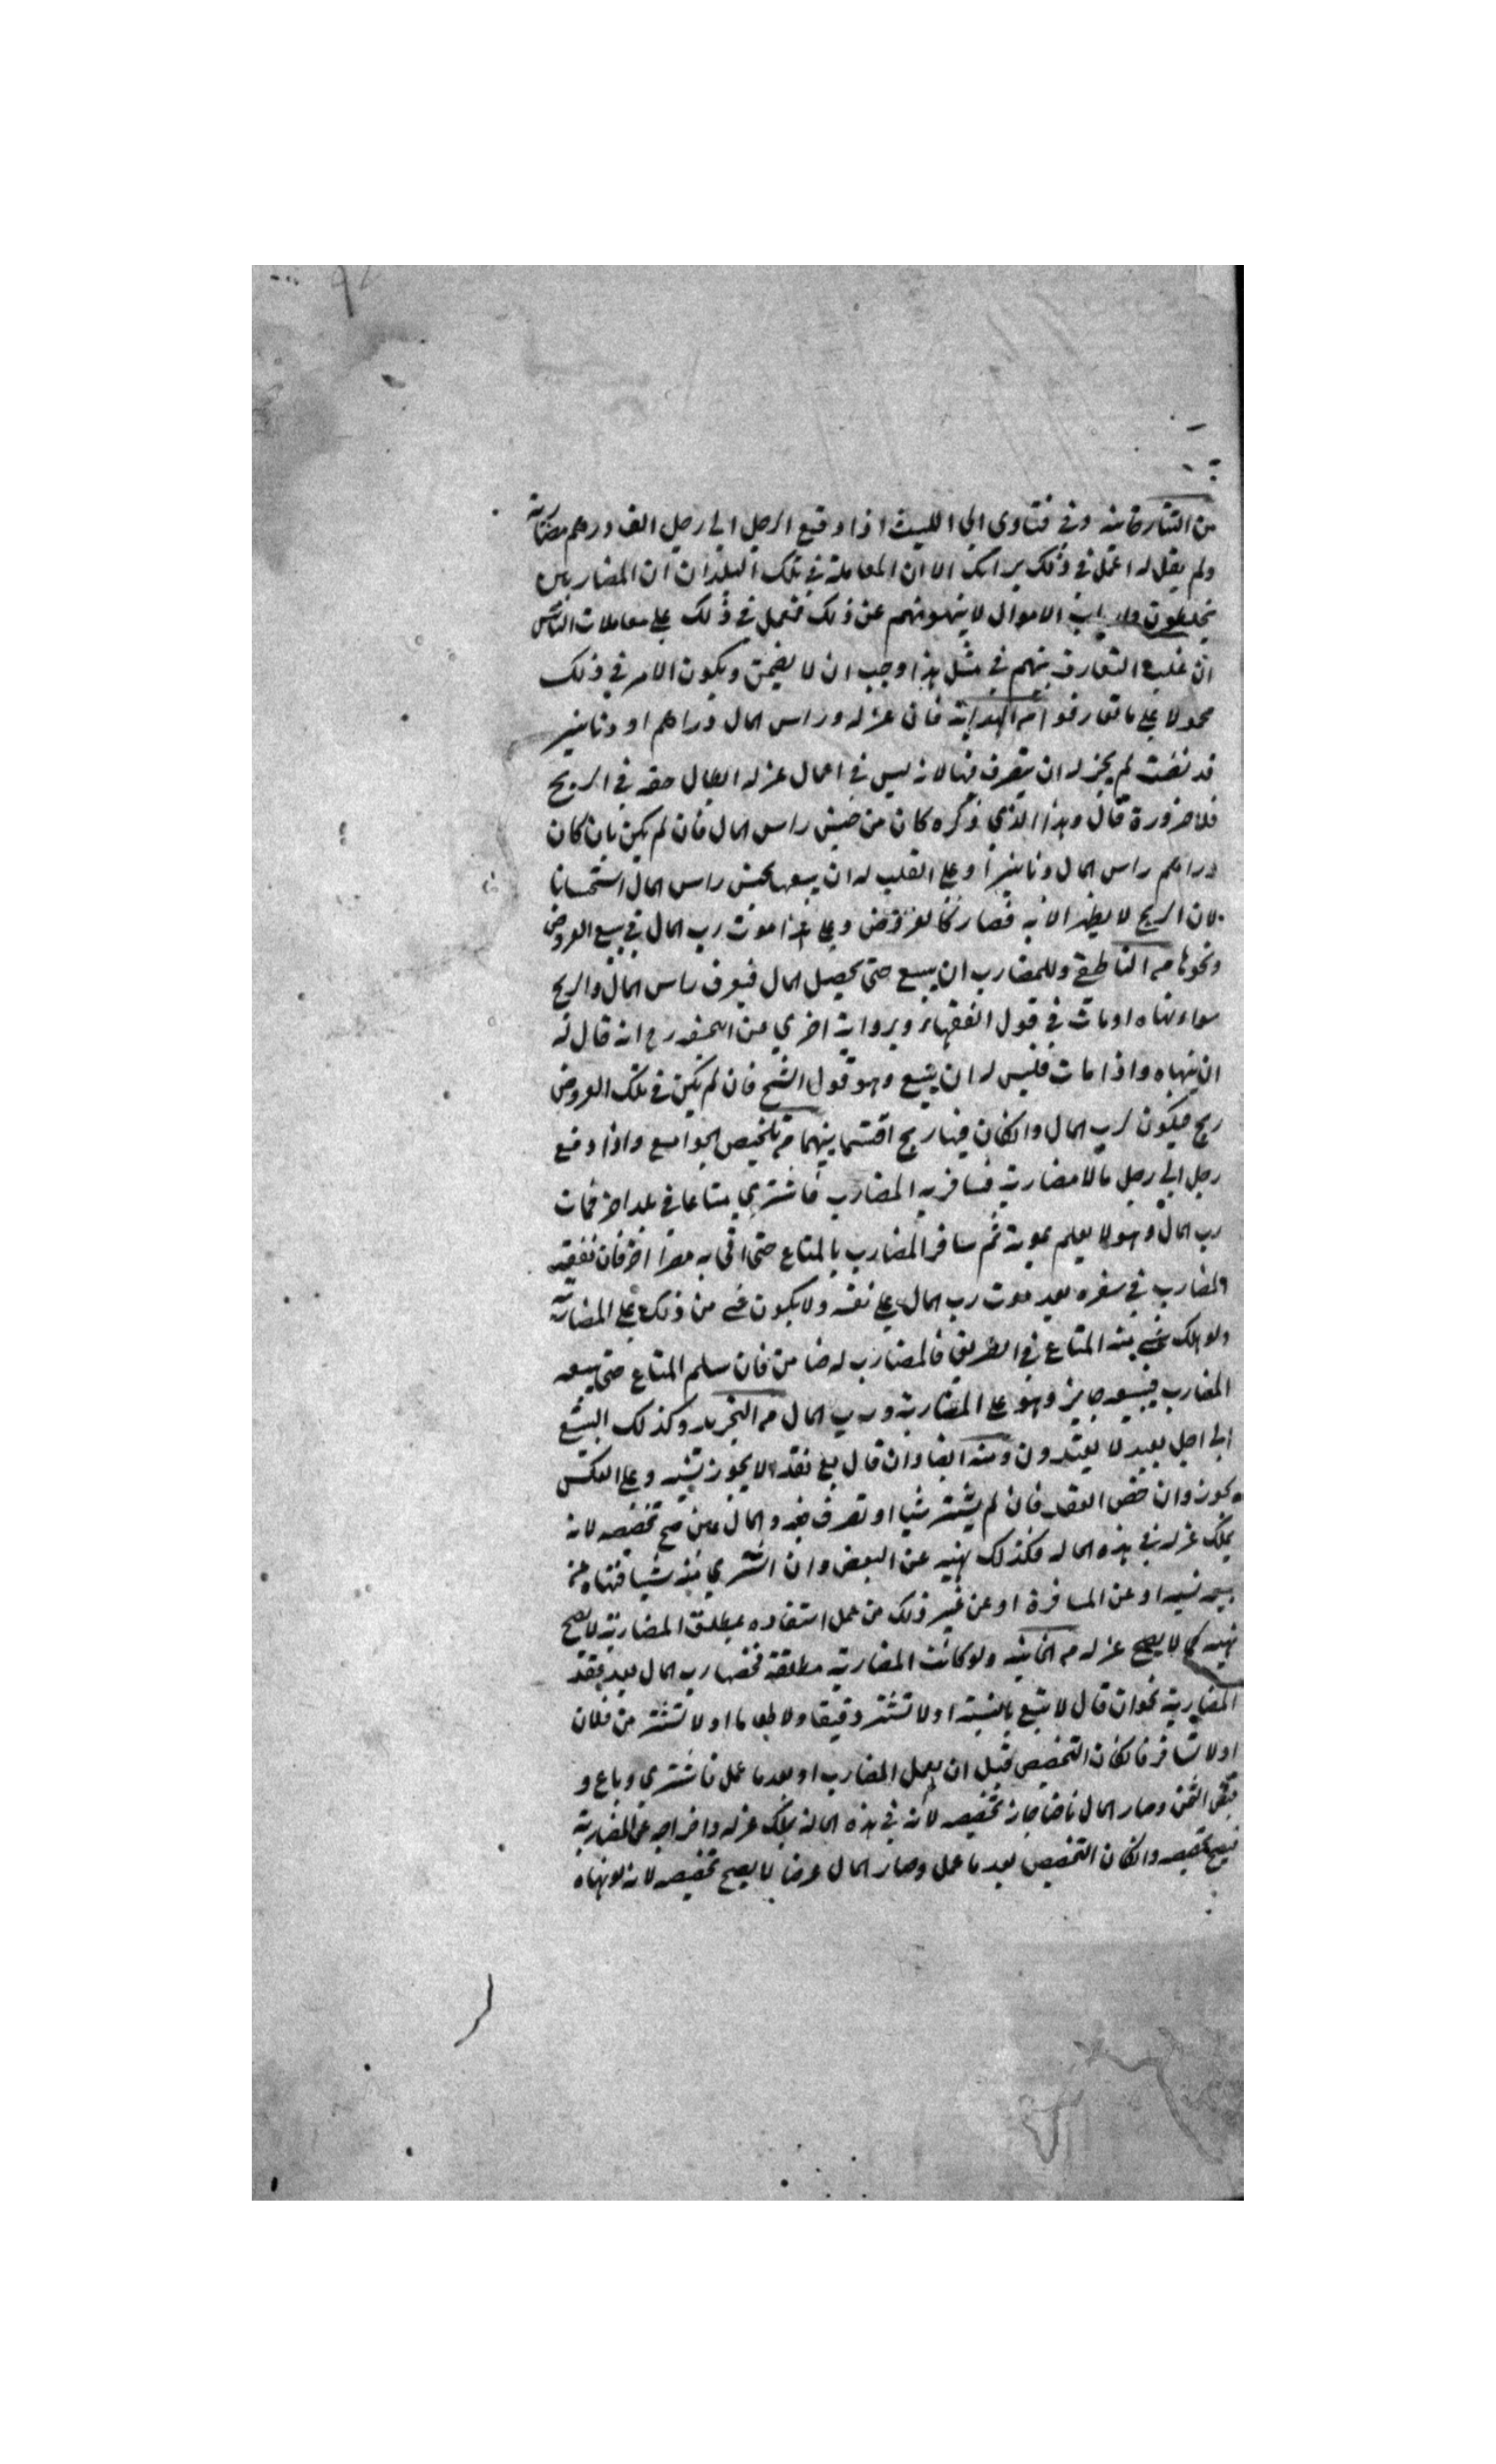 من التتارخانيه وفي فتاوى ابي الليث اذا دفع الرجل الى رجل الف درهم مضاربة
ولم يقل له اعمل في ذلك برايك الا ان المعاملة في تلك البلدان ان المضاربين
يخلطون وارباب الاموال لا ينهونهم عن ذلك فعمل في ذلك على معاملات الناس
ان غلب التعارف بينهم في مثل هذا وجب ان لا يضمن ويكون الامر في ذلك
محمولا على ما تعارفوا من الهداية فان عزله وراس المال دراهم او دنانير
قد نضت لم يجز له ان يتصرف فيها لانه ليس في اعمال عزله ابطال حقه في الربح
فلا ضرورة قال وهذا الذي ذكره كان من جنس راس المال فان لم يكن بان كان
دراهم راس المال دنانيرا وعلى القلب له ان يبيعها بجنس راس المال استحسانا
لان الربح لا يظهر الا به فصار كالعروض وعلى هذا موت رب المال في بيع العروض
ونحوها من الناطفي وللمضارب ان يبيع حتى يحصل المال فيعرف راس المال والربح
سواء نهاه او مات في قول الفقهاء وبرواية اخرى عن ابي حنيفه رح انه قال له
ان ينهاه واذا مات فليس له ان يبيع وهو قول الشيخ فان لم يكن في تلك العروض
ربح فيكون لرب المال وان كان فيها ربح اقتسما بينهما من تلخيص الجوامع واذا دفع
رجل الى رجل مالا مضاربة فسافر به المضارب فاشترى متاعا في بلد اخر فمات
رب المال وهو لا يعلم بموته ثم سافر المضارب بالمتاع حتى اتى به مصرا اخر فان نفقه
المضارب في سفره بعد موت رب المال على نفسه ولا يكون شي من ذلك على المضاربة
ولو هلك شي من المتاع في الطريق فالمضارب له ضامن فان سلم المتاع حتى يبيعه
المضارب فبيعه جايز وهو على المضاربة ورب المال من التجريد وكذلك البيع
الى اجل بعيد لا يعتدون ومنه ايضا وان قال بع نقدا لا يجوز نسيه وعلى العكس
يجوز وان خص العقد فان لم يشتر شيا او تصرف فيه والمال عين صح تخصيصه لانه
يملك عزله في هذه الحاله فكذلك نهيه عن البعض وان اشترى منه شيا فنهاه عن
بيعه نسيه او عن المسافرة او عن غير ذلك من عمل استفاده بمطلق المضاربة لا يصح
نهيه كما لا يصح عزله من الخانيه ولو كانت المضاربة مطلقة فخصها رب المال بعد عقد
المضاربة نحو ان قال لا تبع بالنسية او لا تشتر دقيقا ولا طعاما او لا تشتر من فلان
او لا تسافر فان كان التخصيص قبل ان يعمل المضارب او بعد ما عمل فاشترى وباع و
قبض الثمن وصار المال ناضا جاز تخصيصه لانه في هذه الحالة يملك عزله واخراجه عن المضاربة
فيصح تخصيصه وان كان التخصيص بعد ما عمل وصار المال عرضا لا يصح تخصيصه لانه لو نهاه